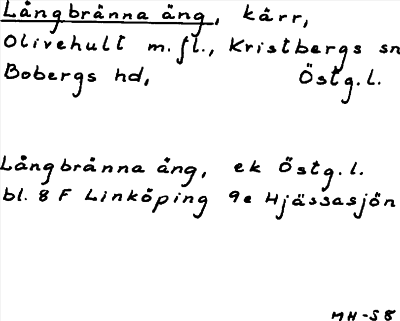 Långbränna äng, kärr,
Olivehult m.fl., Kristbergs sn
Bobergs hd, Östg.l.
Långbränna äng, ek Östg.l.
bl. 8 F Linköping 9e Hjässasjön
MH-58